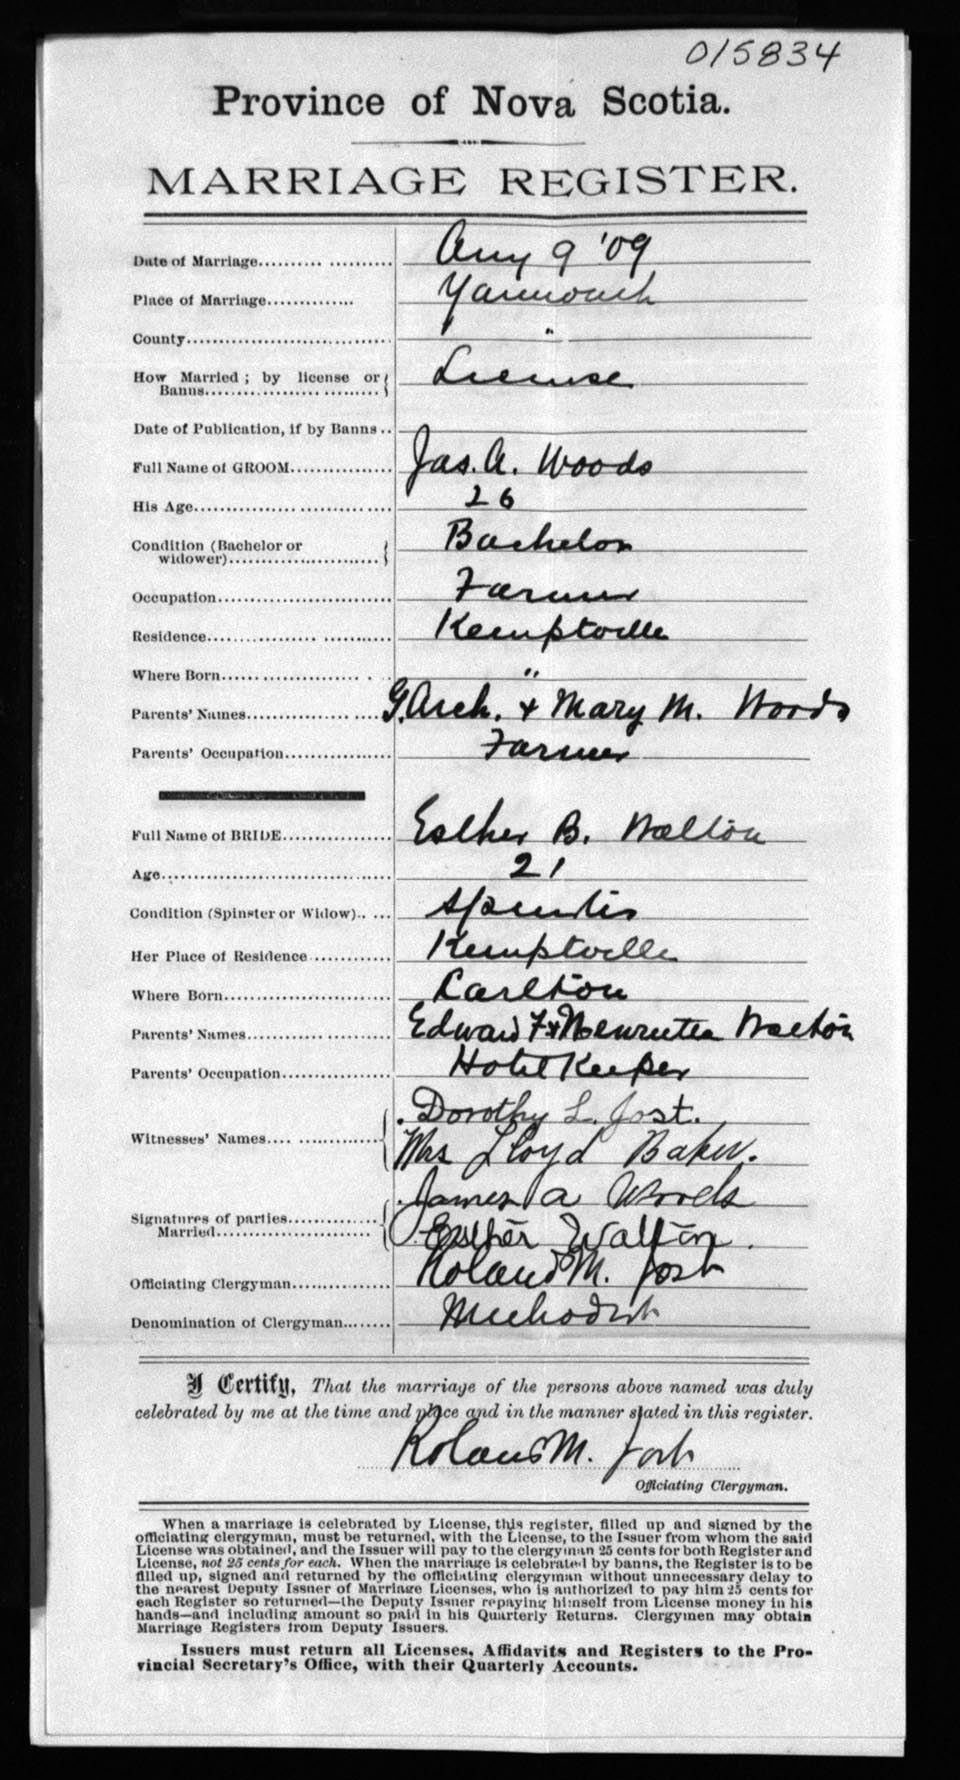 015834
Province of Nova Scotia.
MARRIAGE REGISTER.
Date of Marriage.................... Aug 9 '09
Place of Marriage............. Yarmouth
County.............................. "
How Married ; by license or License
Banns.........................
Date of Publication, if by Banns ..
Full Name of GROOM............... Jas. A. Woods
His Age............................. 26
Condition (Bachelor or Bachelor
widower)......................
Occupation.......................... Farmer
Residence........................... Kemptville
Where Born.................... . .. "
Parents' Names.................... G. Arch. & Mary M. Woods
Parents' Occupation................ Farmer
Full Name of BRIDE................ Esther B. Walton
Age................................. 21
Condition (Spinster or Widow)..... Spinster
Her Place of Residence ............ Kemptville
Where Born......................... Carlton
Parents' Names.................... Edward F & Walton
Parents' Occupation................ Hotel Keeper
Witnesses' Names.... ............. Dorothy L. Jost.
Mrs Lloyd Baker.
Signatures of parties.............. James A Woods
Married....................... Esther Walton.
Officiating Clergyman.............. Roland M. Jost
Denomination of Clergyman........ Methodist
I Certify, That the marriage of the persons above named was duly
celebrated by me at the time and place and in the manner stated in this register.
Roland M. Jost
Officiating Clergyman.
When a marriage is celebrated by License, this register, filled up and signed by the
officiating clergyman, must be returned, with the License, to the Issuer from whom the said
License was obtained, and the Issuer will pay to the clergyman 25 cents for both Register and
License, not 25 cents for each. When the marriage is celebrated by banns, the Register is to be
filled up, signed and returned by the officiating clergyman without unnecessary delay to
the nearest Deputy Issuer of Marriage Licenses, who is authorized to pay him 25 cents for
each Register so returned—the Deputy Issuer repaying himself from License money in his
hands—and including amount so paid in his Quarterly Returns. Clergymen may obtain
Marriage Registers from Deputy Issuers.
Issuers must return all Licenses, Affidavits and Registers to the Pro-
vincial Secretary's Office, with their Quarterly Accounts.